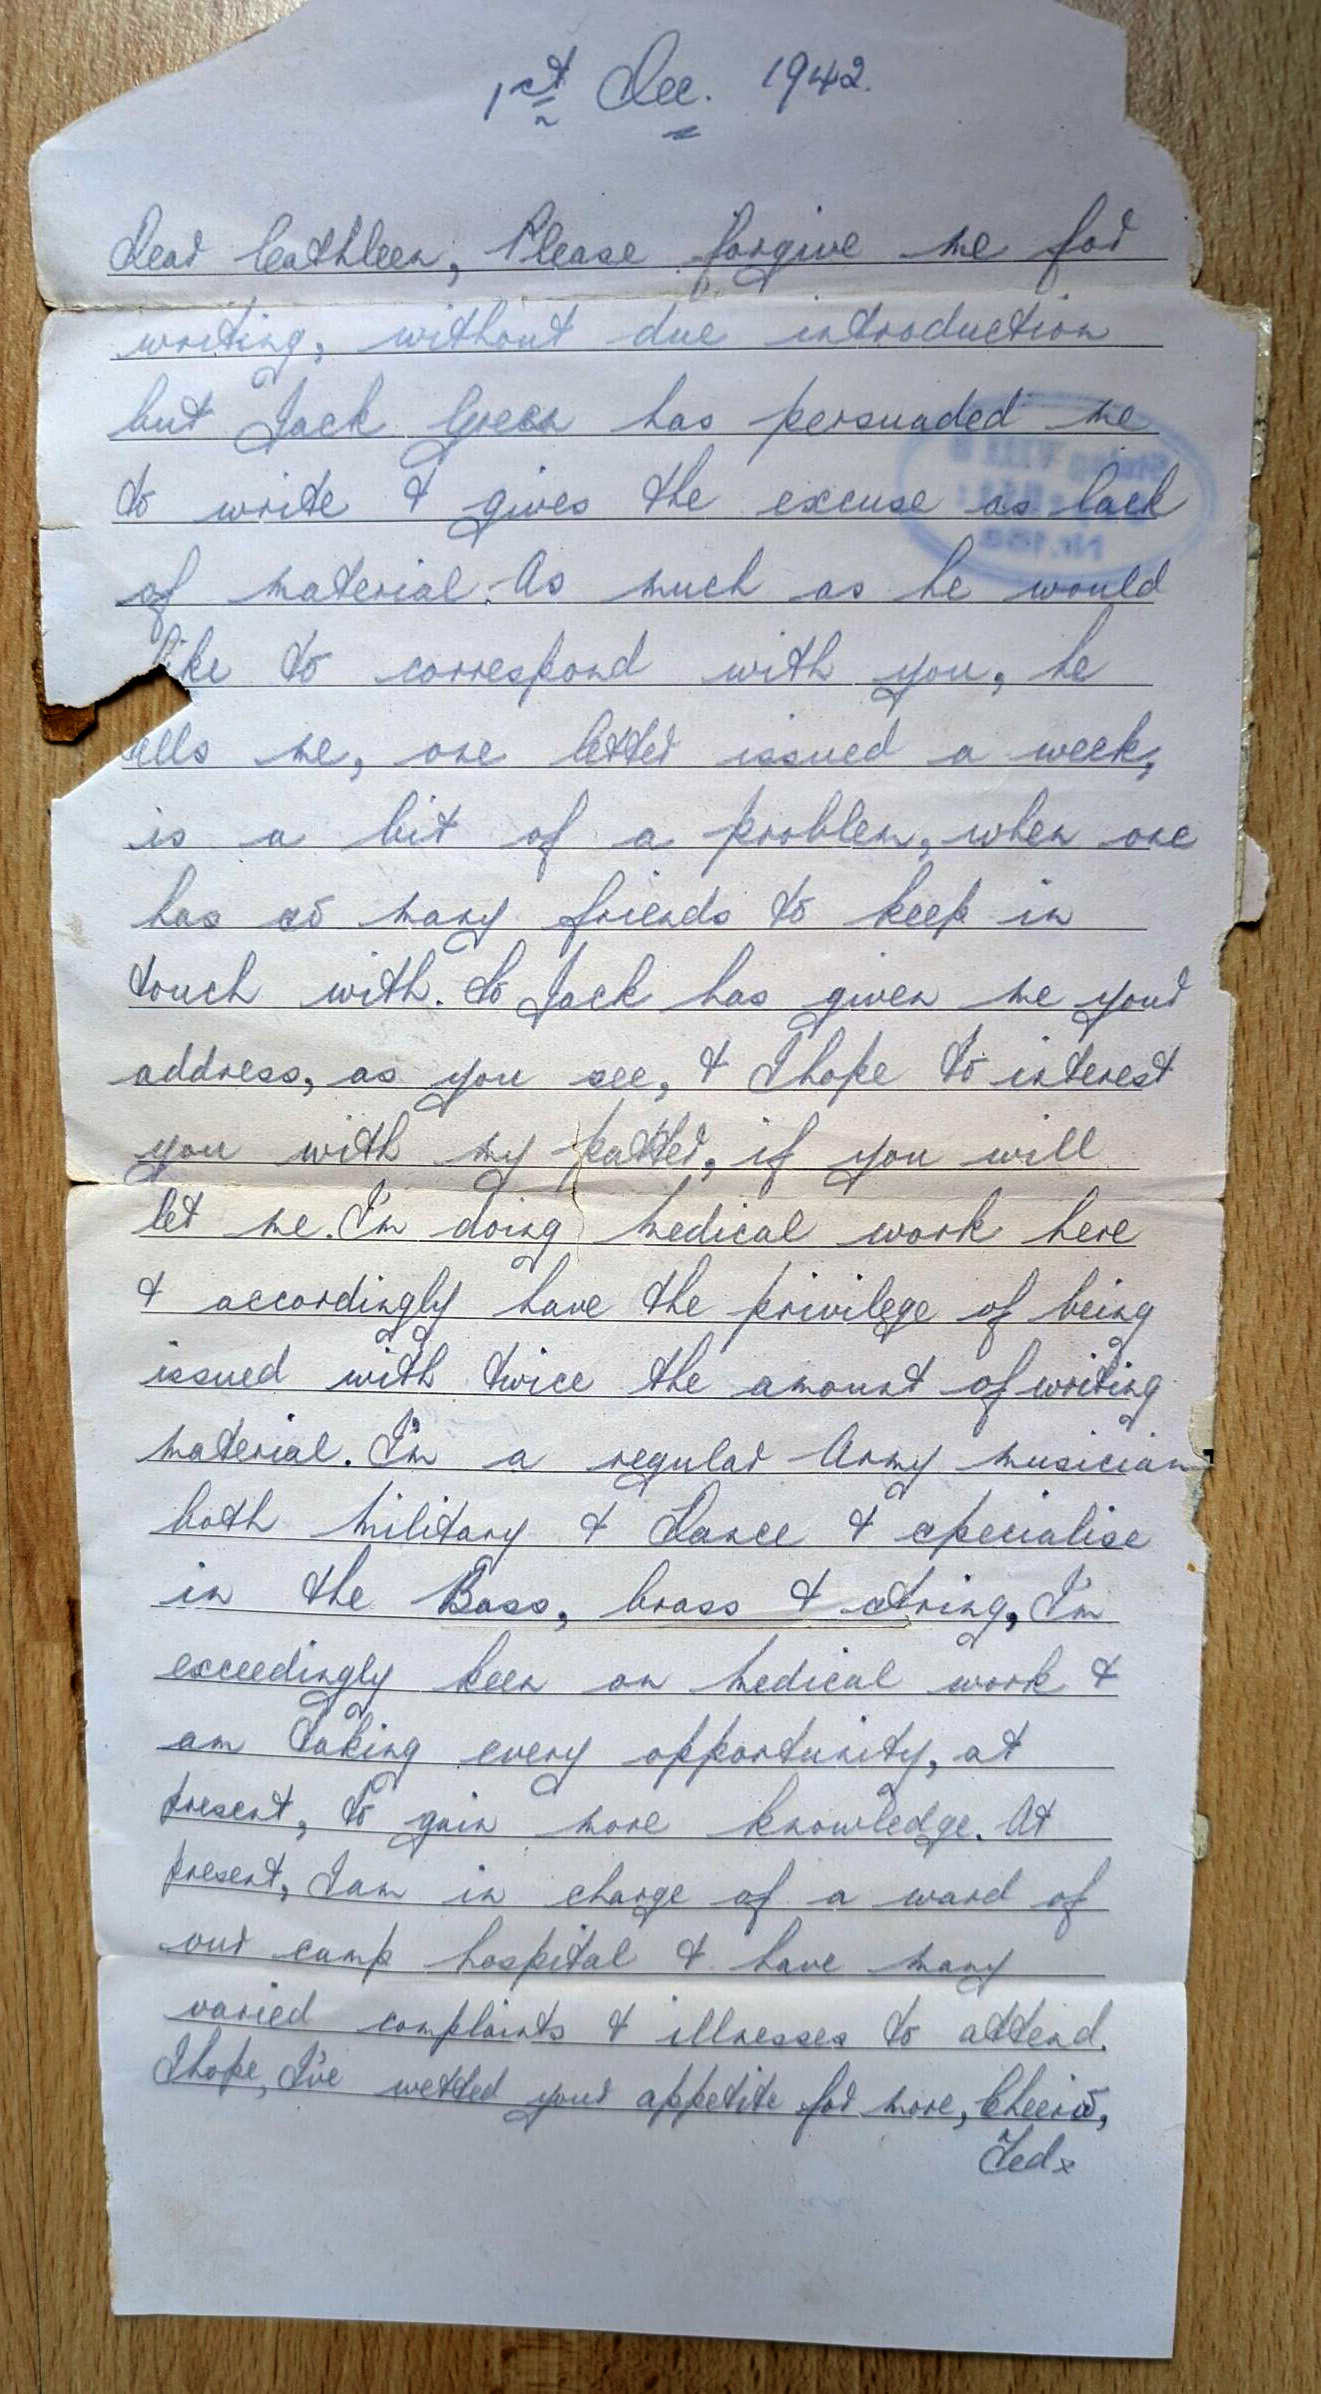 1st Dec. 1942.
Dear Cathleen, Please forgive me for
writing, without due introduction
but Jack Green has persuaded me
to write & gives the excuse as lack
of material. As much as he would
like to correspond with you, he
ells me, one letter issued a week,
is a bit of a problem, when one
has so many friends to keep in
touch with. So Jack has given me your
address, as you see, & I hope to interest
you with my patter, if you will
let me. I'm doing medical work here
& accordingly have the privilege of being
issued with twice the amount of writing
material. I'm a regular Army musician
both military & Dance & specialise
in the Bass, brass & string, I'm
exceedingly keen on medical work &
am taking every opportunity, at
present, to gain more knowledge. At
present, I am in charge of a ward of
our camp hospital & have many
varied complaints & illnesses to attend.
I hope, I've wetted your appetite for more, Cheerio,
Ted x